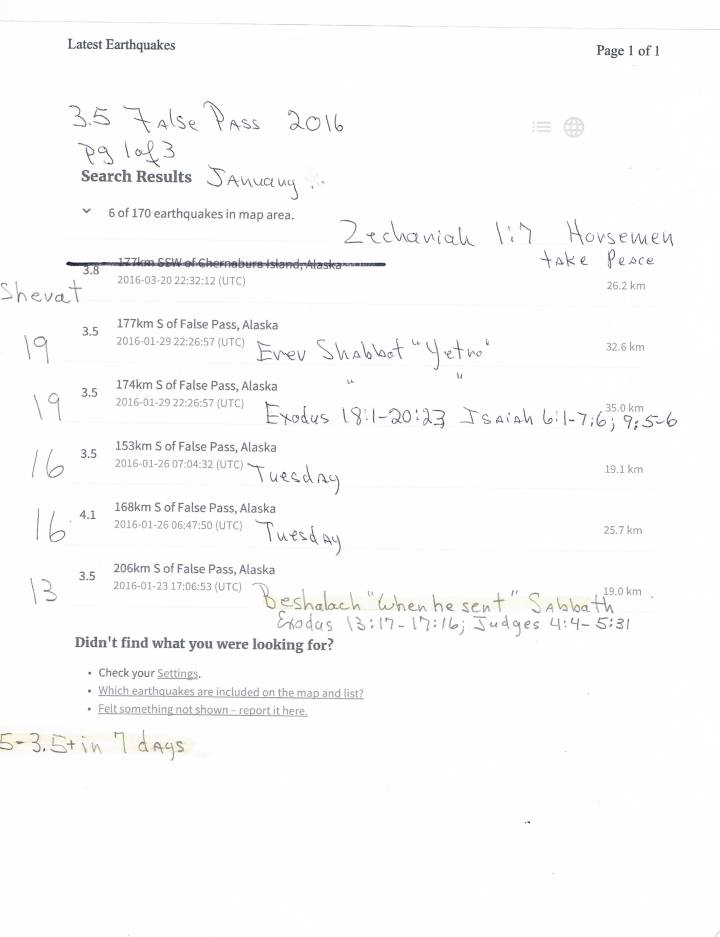 Latest Earthquakes
Page 1 of 1
3.5 False Pass 2016
pg 1 of 3
Search Results January
6 of 170 earthquakes in map area.
Zechariah 1:7 Horsemen
take Peace
Shevat
3.8 177km SSW of Chernabura Island, Alaska
2016-03-20 22:32:12 (UTC) 26.2 km
19 3.5 177km S of False Pass, Alaska
2016-01-29 22:26:57 (UTC) Erev Shabbat "Yetro" 32.6 km
19 3.5 174km S of False Pass, Alaska " "
2016-01-29 22:26:57 (UTC) 35.0 km
Exodus 18:1-20:23 Isaiah 6:1-7:6; 9:5-6
16 3.5 153km S of False Pass, Alaska
2016-01-26 07:04:32 (UTC) Tuesday 19.1 km
16 4.1 168km S of False Pass, Alaska
2016-01-26 06:47:50 (UTC) Tuesday 25.7 km
13 3.5 206km S of False Pass, Alaska
2016-01-23 17:06:53 (UTC) 19.0 km
Beshalach "When he sent" Sabbath
Exodus 13:17-17:16; Judges 4:4-5:31
Didn't find what you were looking for?
• Check your Settings.
• Which earthquakes are included on the map and list?
• Felt something not shown – report it here.
5-3.5+ in 7 days